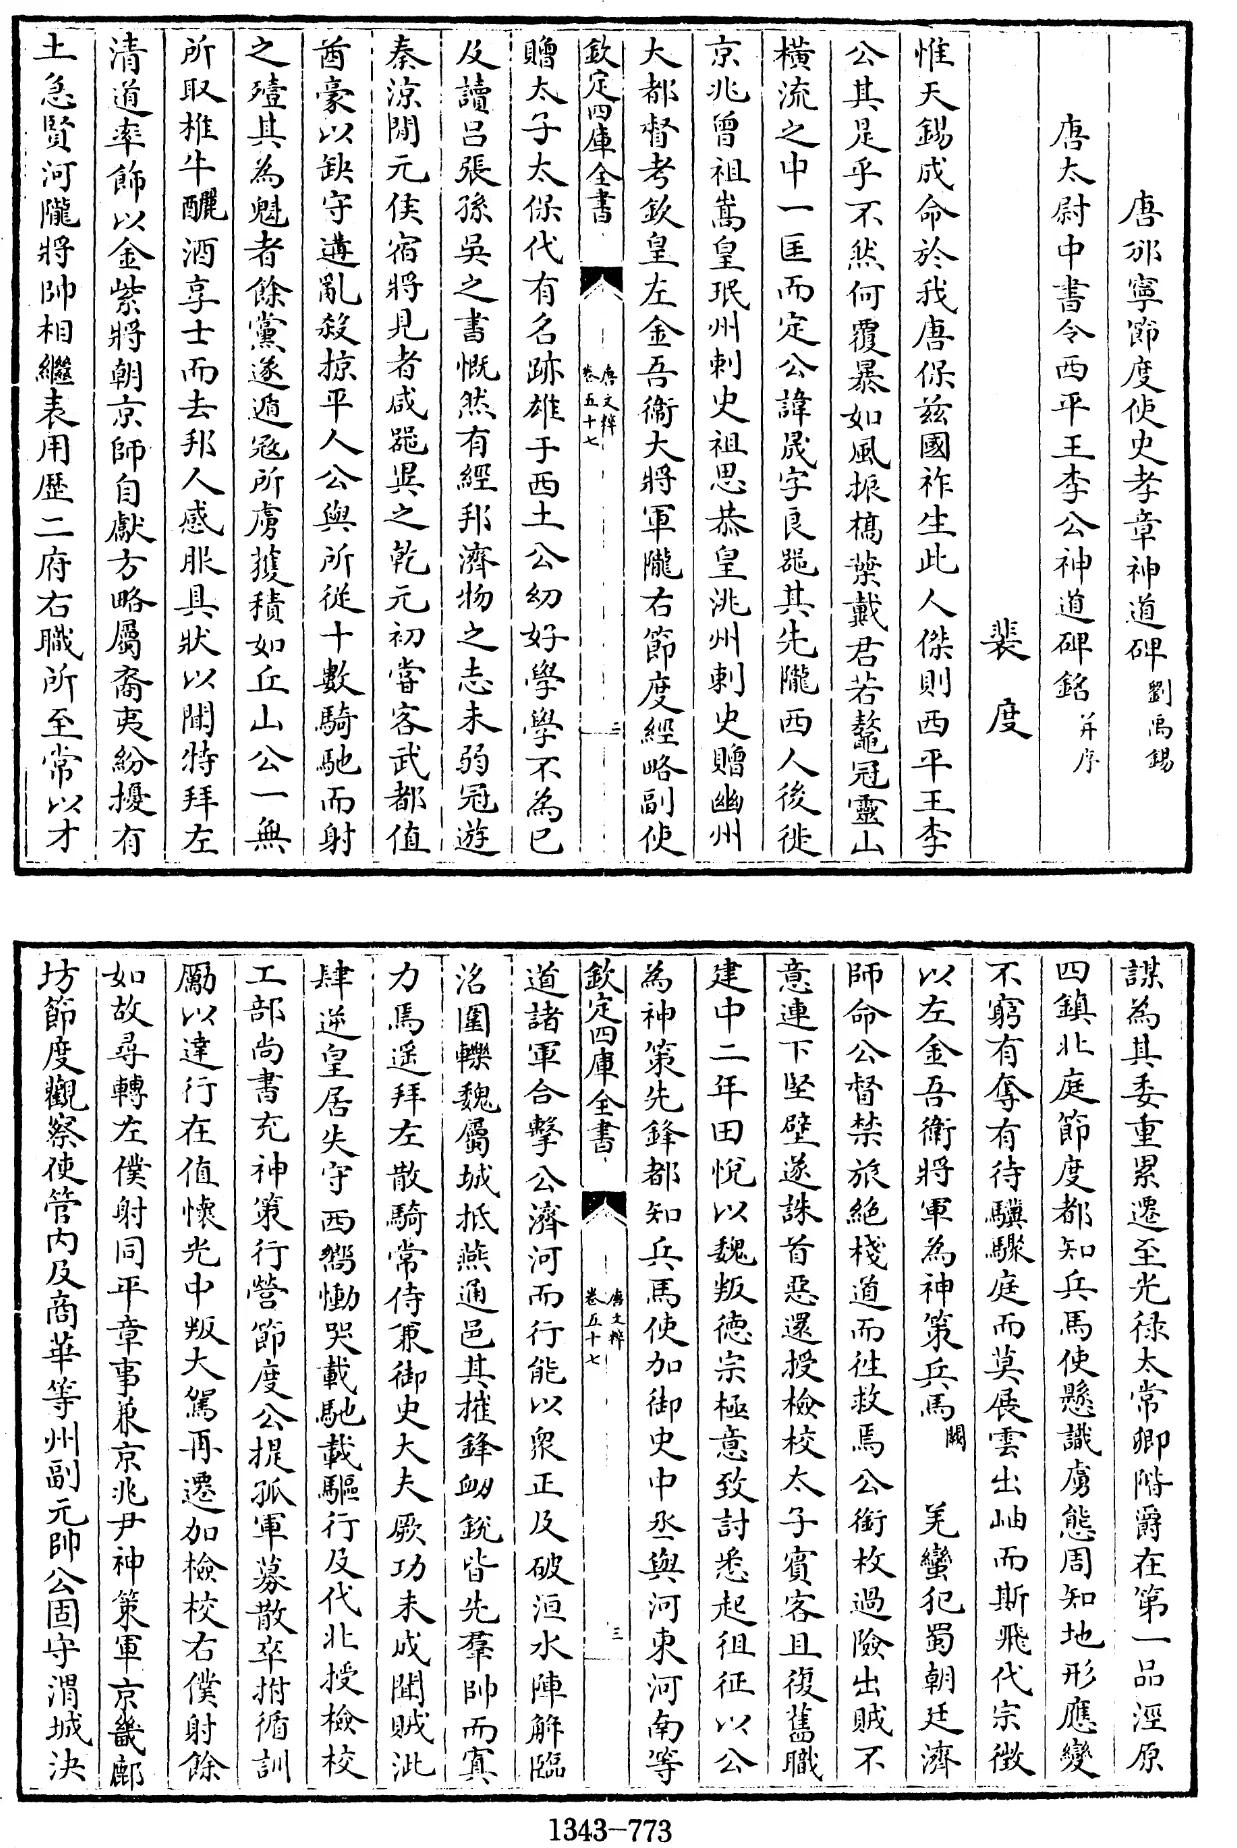 唐邠寧節度使史孝章神道碑劉禹錫
唐太尉中書令西平王李公神道碑銘并序
裴度
惟天錫成命於我唐保兹國祚生此人傑則西平王李
公其是乎不然何覆暴如風振槁葉戴君若鼇冠靈山
橫流之中一匡而定公諱晟字良器其先隴西人後徙
京兆曾祖嵩皇珉州刺史祖思恭皇洮州刺史贈幽州
大都督考欽皇左金吾衞大將軍隴右節度經略副使
欽定四庫全書
唐文粹
卷五十七
二
贈太子太保代有名跡雄于西土公幼好學學不為已
及讀吕張孫吳之書慨然有經邦濟物之志未弱冠遊
秦涼間元侯宿將見者咸器異之乾元初嘗客武都值
酋豪以缺守遘亂殺掠平人公與所從十數騎馳而射
之殪其為魁者餘黨遂遁冦所虜獲積如丘山公一無
所取椎牛釃酒享士而去邦人感服具狀以聞特拜左
清道率飾以金紫將朝京師自獻方略屬裔夷紛擾有
土急賢河隴將帥相繼表用歷二府右職所至常以才
謀為其委重累遷至光禄太常卿階爵在第一品涇原
四鎮北庭節度都知兵馬使懸識虜態周知地形應變
不窮有奪有待驥驟庭而莫展雲出岫而斯飛代宗徴
以左金吾衞將軍為神策兵馬闕羌蠻犯蜀朝廷濟
師命公督禁旅絶棧道而徃救焉公銜枚過險出賊不
意連下堅壁遂誅首惡還授檢校太子賓客且復舊職
建中二年田悅以魏叛德宗極意致討悉起徂征以公
為神策先鋒都知兵馬使加御史中丞與河東河南等
欽定四庫全書
唐文粹
卷五十七
三
道諸軍合擊公濟河而行能以衆正及破洹水陣解臨
洺圍轢魏屬城抵燕通邑其摧鋒衂銳皆先羣帥而寘
力焉遥拜左散騎常侍兼御史大夫厥功未成聞賊泚
肆逆皇居失守西嚮慟哭載馳載驅行及代北授檢校
工部尚書充神策行營節度公提孤軍募散卒拊循訓
勵以達行在值懷光中叛大駕再遷加檢校右僕射餘
如故尋轉左僕射同平章事兼京兆尹神策軍京畿鄜
坊節度觀察使管内及商華等州副元帥公固守渭城決
1343-773